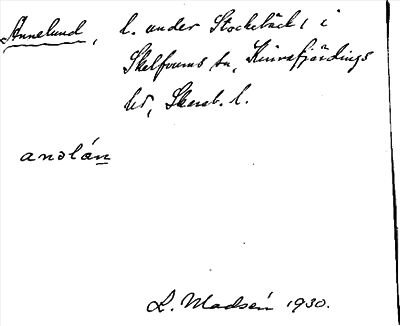 Annelund, l. under Stockebäck 1 i
Skelfvums sn, Kinnefjärdings
hd, Skarab. l.
anəlán
L. Madsén 1930.